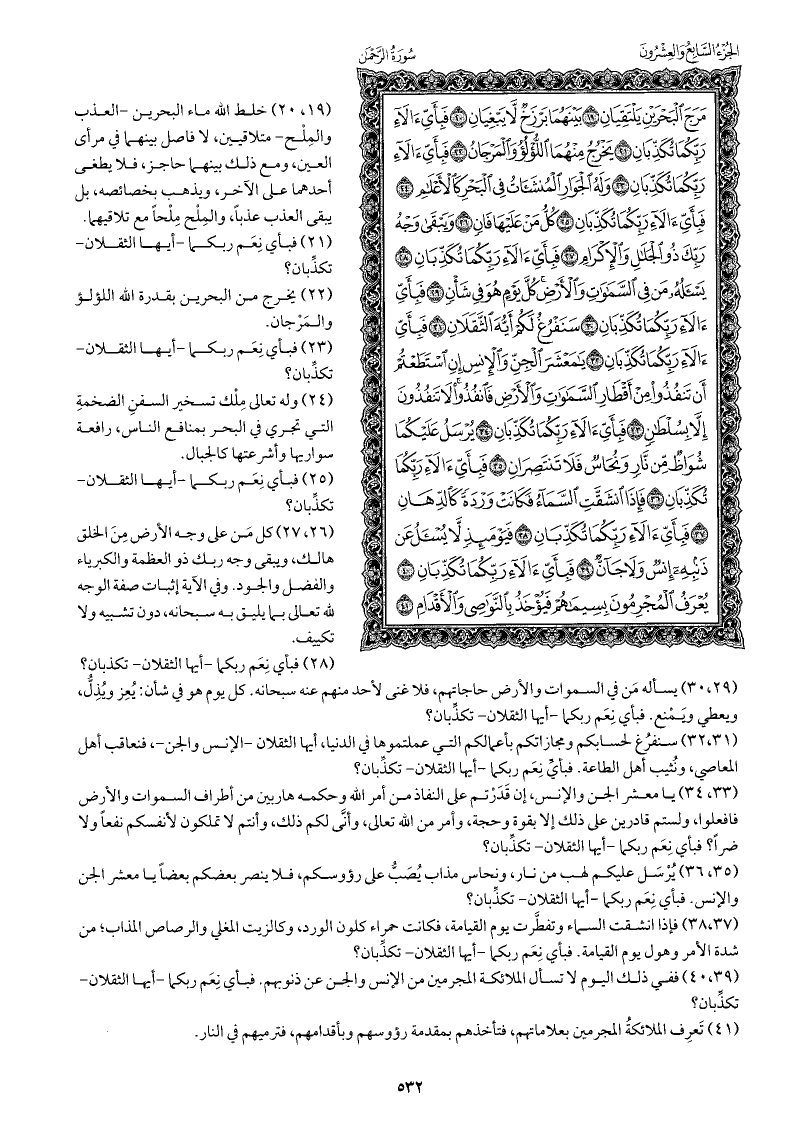 الجزء السابع والعشرون
سورة الرحمن
مَرَجَ ٱلْبَحْرَيْنِ يَلْتَقِيَانِ ١٩ بَيْنَهُمَا بَرْزَخٌ لَّا يَبْغِيَانِ ٢٠ فَبِأَيِّ ءَالَآءِ
رَبِّكُمَا تُكَذِّبَانِ ٢١ يَخْرُجُ مِنْهُمَا ٱللُّؤْلُؤُ وَٱلْمَرْجَانُ ٢٢ فَبِأَيِّ ءَالَآءِ
رَبِّكُمَا تُكَذِّبَانِ ٢٣ وَلَهُ ٱلْجَوَارِ ٱلْمُنشَـَٔاتُ فِى ٱلْبَحْرِ كَٱلْأَعْلَٰمِ ٢٤
فَبِأَيِّ ءَالَآءِ رَبِّكُمَا تُكَذِّبَانِ ٢٥ كُلُّ مَنْ عَلَيْهَا فَانٍ ٢٦ وَيَبْقَىٰ وَجْهُ
رَبِّكَ ذُو ٱلْجَلَٰلِ وَٱلْإِكْرَامِ ٢٧ فَبِأَيِّ ءَالَآءِ رَبِّكُمَا تُكَذِّبَانِ ٢٨
يَسْـَٔلُهُۥ مَن فِى ٱلسَّمَٰوَٰتِ وَٱلْأَرْضِ ۚ كُلَّ يَوْمٍ هُوَ فِى شَأْنٍ ٢٩ فَبِأَيِّ
ءَالَآءِ رَبِّكُمَا تُكَذِّبَانِ ٣٠ سَنَفْرُغُ لَكُمْ أَيُّهَ ٱلثَّقَلَانِ ٣١ فَبِأَيِّ
ءَالَآءِ رَبِّكُمَا تُكَذِّبَانِ ٣٢ يَٰمَعْشَرَ ٱلْجِنِّ وَٱلْإِنسِ إِنِ ٱسْتَطَعْتُمْ
أَن تَنفُذُوا۟ مِنْ أَقْطَارِ ٱلسَّمَٰوَٰتِ وَٱلْأَرْضِ فَٱنفُذُوا۟ ۚ لَا تَنفُذُونَ
إِلَّا بِسُلْطَٰنٍ ٣٣ فَبِأَيِّ ءَالَآءِ رَبِّكُمَا تُكَذِّبَانِ ٣٤ يُرْسَلُ عَلَيْكُمَا
شُوَاظٌ مِّن نَّارٍ وَنُحَاسٌ فَلَا تَنتَصِرَانِ ٣٥ فَبِأَيِّ ءَالَآءِ رَبِّكُمَا
تُكَذِّبَانِ ٣٦ فَإِذَا ٱنشَقَّتِ ٱلسَّمَآءُ فَكَانَتْ وَرْدَةً كَٱلدِّهَانِ
٣٧ فَبِأَيِّ ءَالَآءِ رَبِّكُمَا تُكَذِّبَانِ ٣٨ فَيَوْمَئِذٍ لَّا يُسْـَٔلُ عَن
ذَنۢبِهِۦٓ إِنسٌ وَلَا جَآنٌّ ٣٩ فَبِأَيِّ ءَالَآءِ رَبِّكُمَا تُكَذِّبَانِ ٤٠
يُعْرَفُ ٱلْمُجْرِمُونَ بِسِيمَٰهُمْ فَيُؤْخَذُ بِٱلنَّوَٰصِى وَٱلْأَقْدَامِ ٤١
(١٩، ٢٠) خلط الله ماء البحرين -العذب
والمِلْح- متلاقيين، لا فاصل بينهما في مرأى
العين، ومع ذلك بينهما حاجز، فلا يطغى
أحدهما على الآخر، ويذهب بخصائصه، بل
يبقى العذب عذباً، والمِلح مِلْحاً مع تلاقيهما.
(٢١) فبأي نِعَم ربكما -أيها الثقلان-
تكذِّبان؟
(٢٢) يخرج من البحرين بقدرة الله اللؤلؤ
والمَرْجان.
(٢٣) فبأي نِعَم ربكما -أيها الثقلان-
تكذِّبان؟
(٢٤) وله تعالى مِلْك تسخير السفن الضخمةِ
التي تجري في البحر بمنافع الناس، رافعة
سواريها وأشرعتها كالجبال.
(٢٥) فبأي نِعَم ربكما -أيها الثقلان-
تكذِّبان؟
(٢٦، ٢٧) كل مَن على وجه الأرض مِنَ الخلق
هالك، ويبقى وجه ربك ذو العظمة والكبرياء
والفضل والجود. وفي الآية إثبات صفة الوجه
لله تعالى بما يليق به سبحانه، دون تشبيه ولا
تكييف.
(٢٨) فبأي نِعَم ربكما -أيها الثقلان- تكذبان؟
(٢٩، ٣٠) يسأله مَن في السموات والأرض حاجاتهم، فلا غنى لأحد منهم عنه سبحانه. كل يوم هو في شأن: يُعِز ويُذِلُّ،
ويعطي ويَمْنع. فبأي نِعَم ربكما -أيها الثقلان- تكذِّبان؟
(٣١، ٣٢) سنفرُغ لحسابكم ومجازاتكم بأعمالكم التي عملتموها في الدنيا، أيها الثقلان -الإنس والجن-، فنعاقب أهل
المعاصي، ونُثيب أهل الطاعة. فبأيِّ نِعَم ربكما -أيها الثقلان- تكذِّبان؟
(٣٣، ٣٤) يا معشر الجن والإنس، إن قَدَرْتم على النفاذ من أمر الله وحكمه هاربين من أطراف السموات والأرض
فافعلوا، ولستم قادرين على ذلك إلا بقوة وحجة، وأمر من الله تعالى، وأنَّى لكم ذلك، وأنتم لا تملكون لأنفسكم نفعاً ولا
ضراً؟ فبأي نِعَم ربكما -أيها الثقلان- تكذِّبان؟
(٣٥، ٣٦) يُرْسَل عليكم لهب من نار، ونحاس مذاب يُصَبُّ على رؤوسكم، فلا ينصر بعضكم بعضاً يا معشر الجن
والإنس. فبأي نِعَم ربكما -أيها الثقلان- تكذِّبان؟
(٣٧، ٣٨) فإذا انشقت السماء وتفطَّرت يوم القيامة، فكانت حمراء كلون الورد، وكالزيت المغلي والرصاص المذاب؛ من
شدة الأمر وهول يوم القيامة. فبأي نِعَم ربكما -أيها الثقلان- تكذِّبان؟
(٣٩، ٤٠) ففي ذلك اليوم لا تسأل الملائكة المجرمين من الإنس والجن عن ذنوبهم. فبأي نِعَم ربكما -أيها الثقلان-
تكذِّبان؟
(٤١) تَعرِف الملائكةُ المجرمين بعلاماتهم، فتأخذهم بمقدمة رؤوسهم وبأقدامهم، فترميهم في النار.
٥٣٢